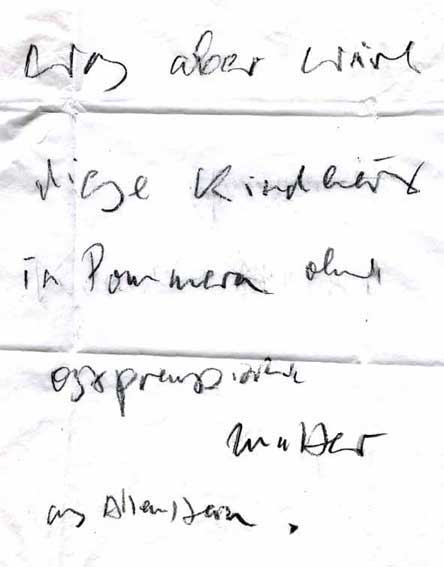 was aber wäre
diese Kindheit
in Pommern ohne
ostpreussische
Mutter
aus Allenstein.